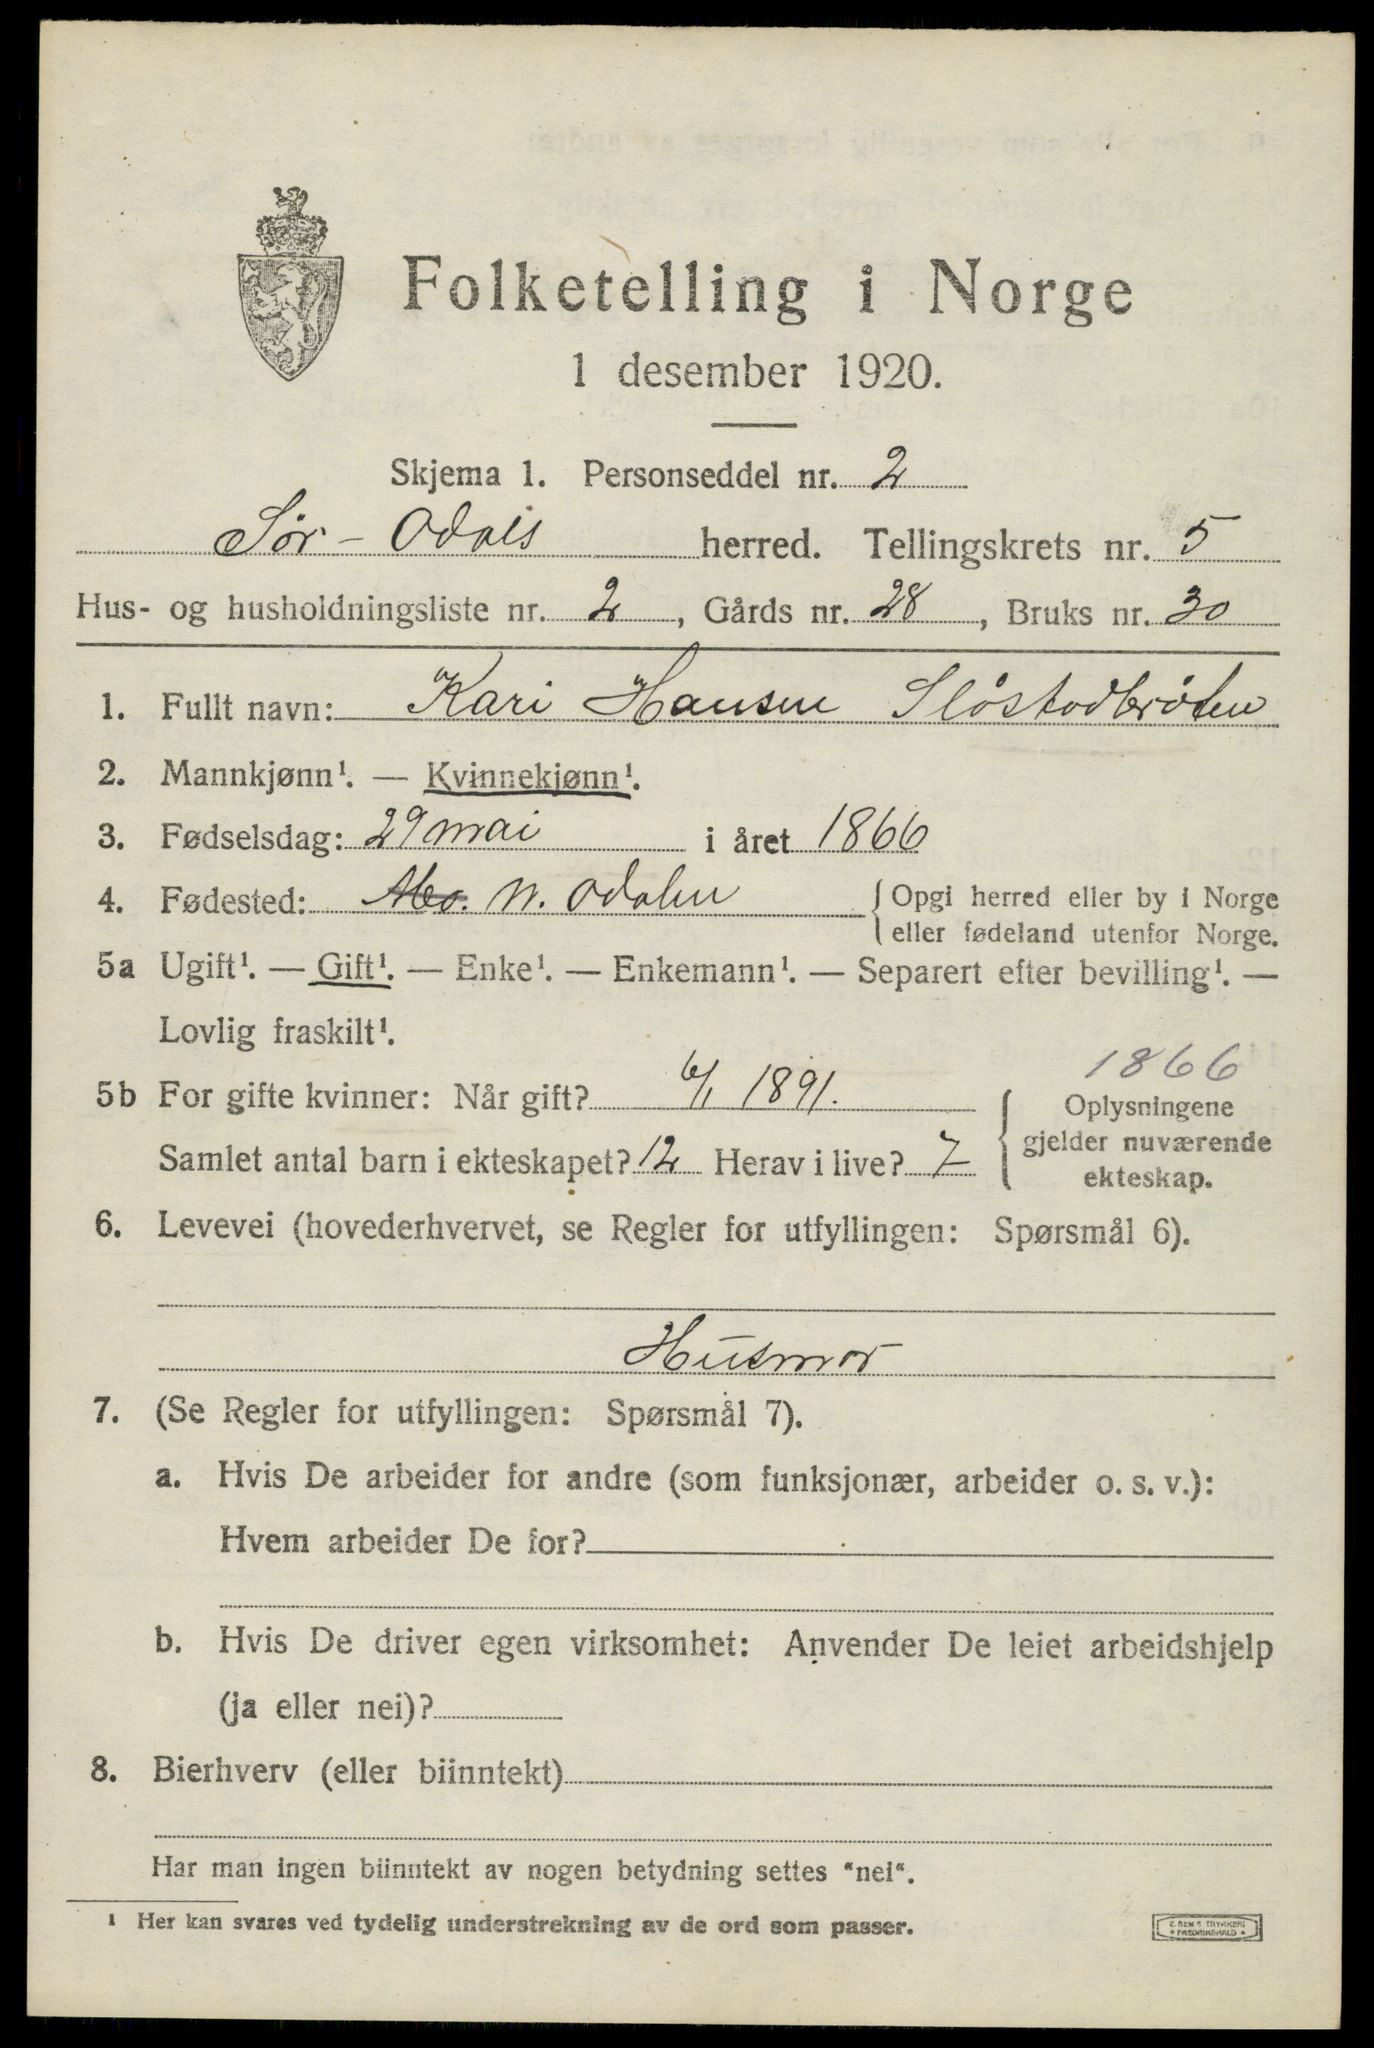 Folketelling i Norge
1 desember 1920.
Skjema 1. Personseddel nr. 2
Sør-Odals herred. Tellingskrets nr. 5
Hus- og husholdningsliste nr. 2, Gårds nr. 28, Bruks nr. 30
1. Fullt navn: Kari Hansen Slöstadbröten
2. Mannkjønn¹. — Kvinnekjønn¹.
3. Fødselsdag: 29 mai i året 1866
4. Fødested: Mo. N. Odalen { Opgi herred eller by i Norge
eller fødeland utenfor Norge.
5a Ugift¹. — Gift¹. — Enke¹. — Enkemann¹. — Separert efter bevilling¹. —
Lovlig fraskilt¹.
1866
5b For gifte kvinner: Når gift? 6/1 1891.
Samlet antal barn i ekteskapet? 12 Herav i live? 7
Oplysningene
gjelder nuværende
ekteskap.
6. Levevei (hovederhvervet, se Regler for utfyllingen: Spørsmål 6).
Husmor
7. (Se Regler for utfyllingen: Spørsmål 7).
a. Hvis De arbeider for andre (som funksjonær, arbeider o. s. v.):
Hvem arbeider De for?
b. Hvis De driver egen virksomhet: Anvender De leiet arbeidshjelp
(ja eller nei)?
8. Bierhverv (eller biinntekt)
Har man ingen biinntekt av nogen betydning settes "nei".
¹ Her kan svares ved tydelig understrekning av de ord som passer.
E. SEM'S TRYKKERI
FREDRIKSHALD